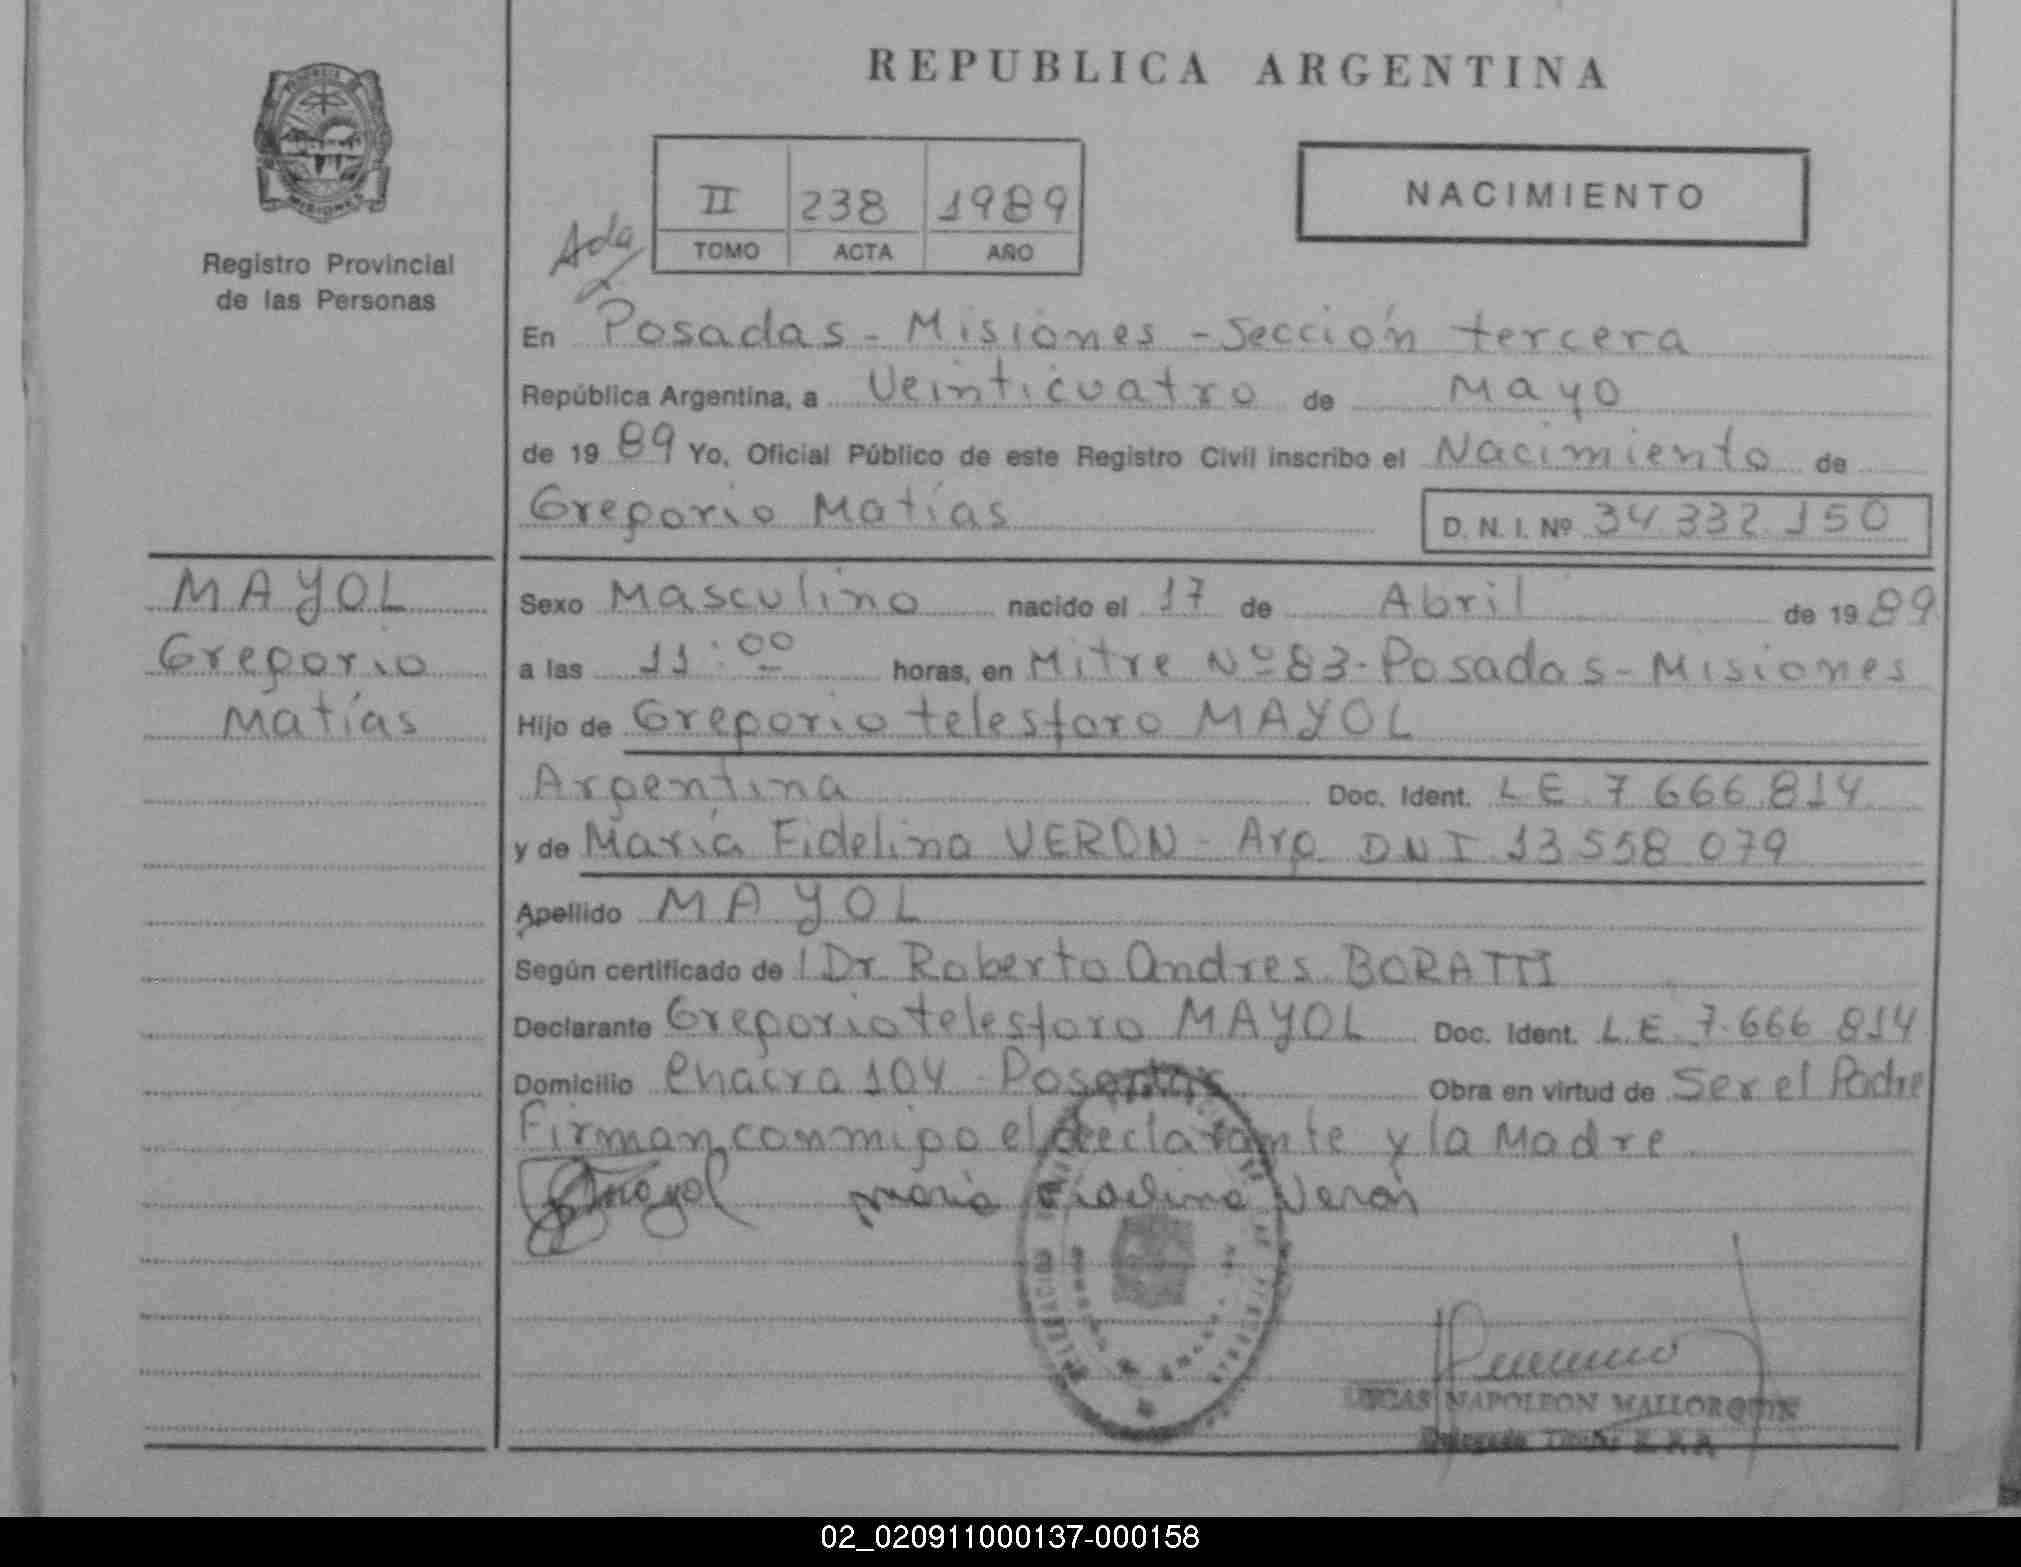 REPUBLICA ARGENTINA
MISIONES
Registro Provincial
de las Personas
II 238 1989
TOMO ACTA AÑO
NACIMIENTO
Ada
En Posadas - Misiones - Sección tercera
República Argentina, a Veinticuatro de Mayo
de 19 89 Yo, Oficial Público de este Registro Civil inscribo el Nacimiento de
Gregorio Matías D. N. I. Nº 34 332 150
MAYOL
Gregorio
Matías
Sexo Masculino nacido el 17 de Abril de 19 89
a las 11:00 horas, en Mitre Nº 83 - Posadas - Misiones
Hijo de Gregorio telesforo MAYOL
Argentina Doc. Ident. LE 7 666 814
y de María Fidelina VERON - Arg DNI 13 558 079
Apellido MAYOL
Según certificado de Dr Roberto Andres BORATTI
Declarante Gregorio telesforo MAYOL Doc. Ident. L.E. 7.666 814
Domicilio Chacra 104 - Posadas Obra en virtud de Ser el Padre
Firman conmigo el declarante y la Madre
Mayol Maria Fidelina Veron
LUCAS NAPOLEON MALLORQUIN
02_020911000137-000158